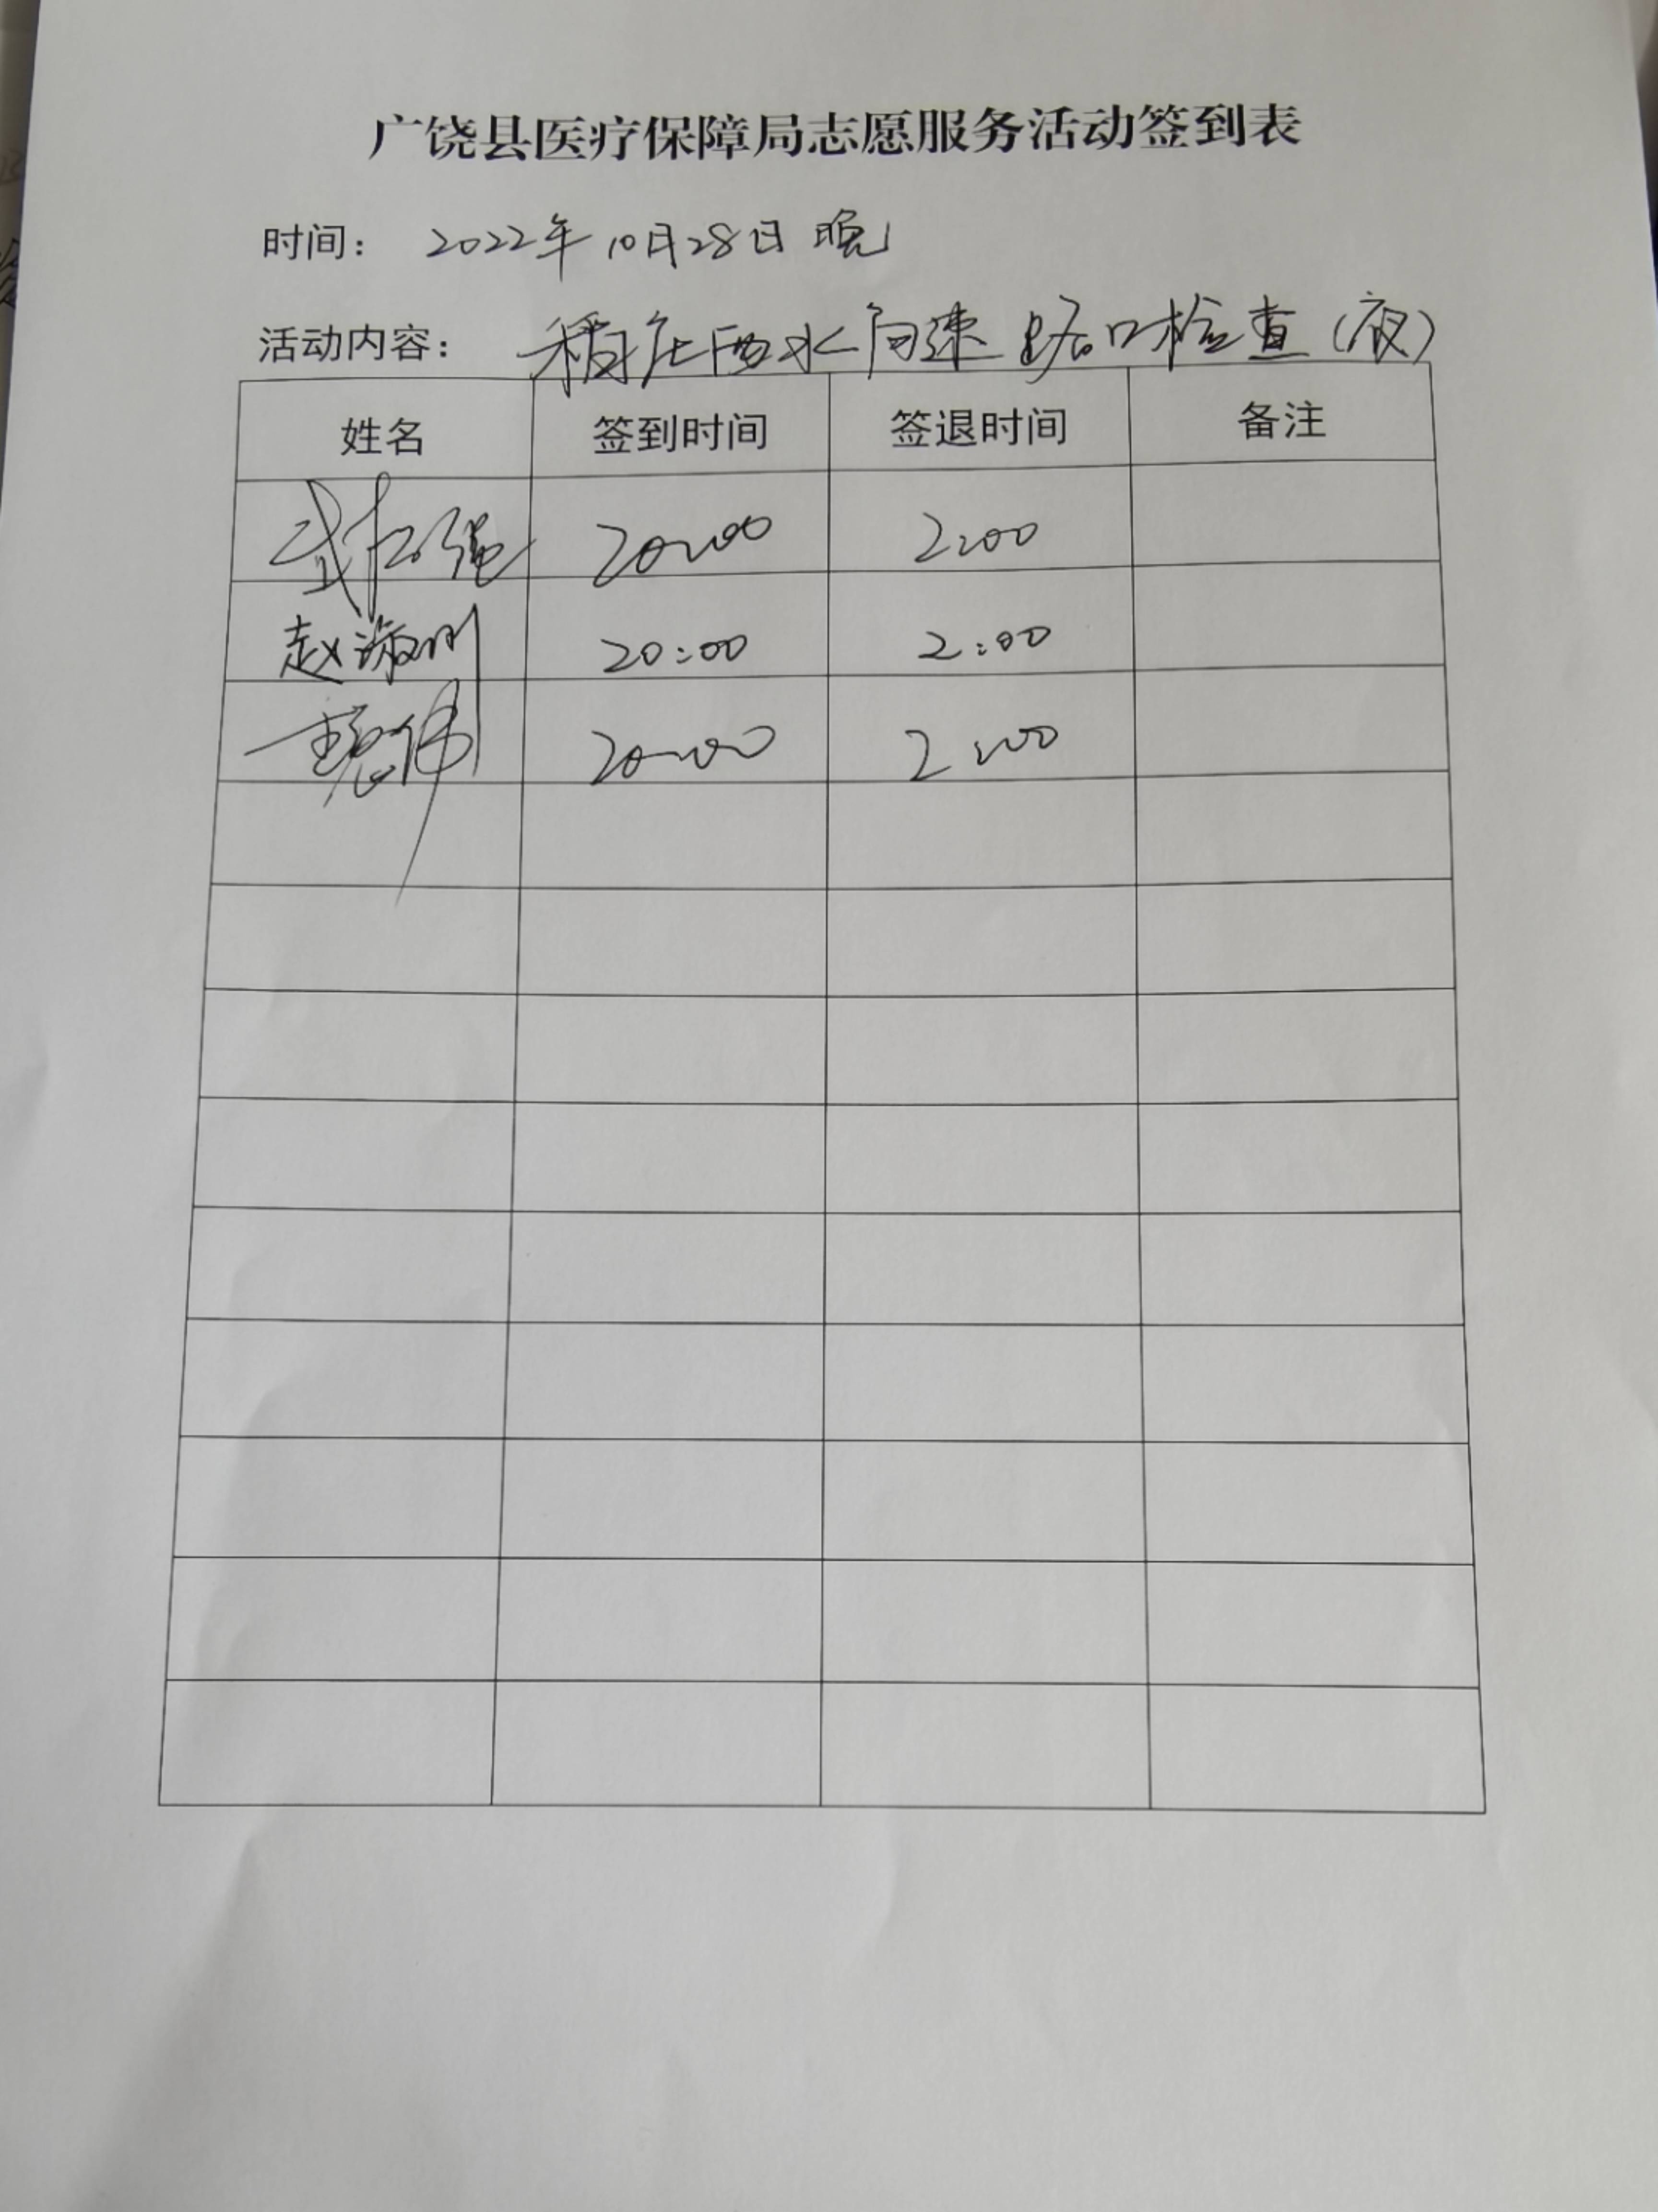 广饶县医疗保障局志愿服务活动签到表
时间： 2022年10月28日 晚
活动内容： 稻庄西水高速路口检查（夜）
姓名 签到时间 签退时间 备注
20:00 2:00
赵 20:00 2:00
王 伟 20:00 2:00